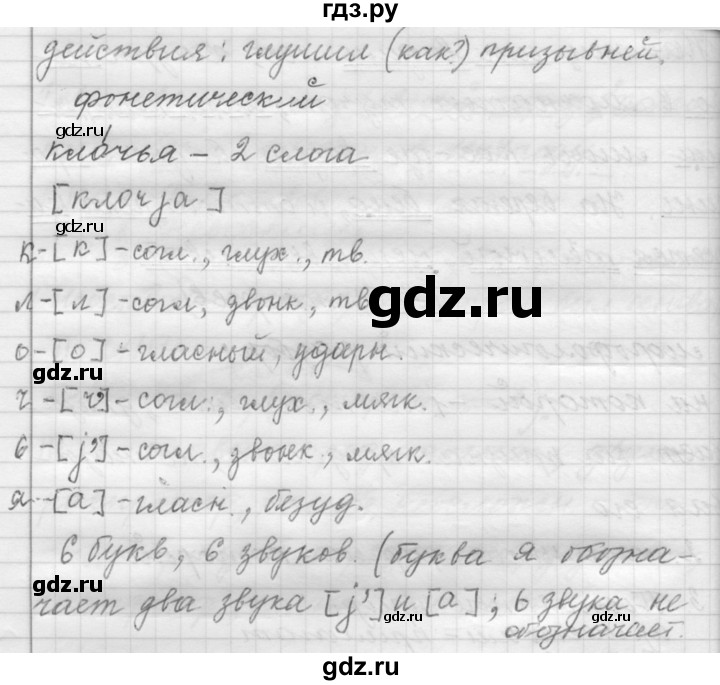 гдз.ру
действия: глушил (как?) призывней.
с
фонетический
gdz.ru
клочья – 2 слога
[клочjа]
gdz.ru
к-[к]-согл., глух., тв.
gdz.ru
л-[л]-согл, звонк, тв
о-[о]-гласный, ударн.
gdz.ru
ч-[ч']-согл., глух., мягк.
ь-[j']-согл., звонк., мягк.
gdz.ru
я-[а]-гласн., безуд.
6 букв, 6 звуков. (буква я обозна-
gdz.ru
чает два звука [j'] и [а]; ь звука не
обозначает.
gdz.ru
gdz.ru